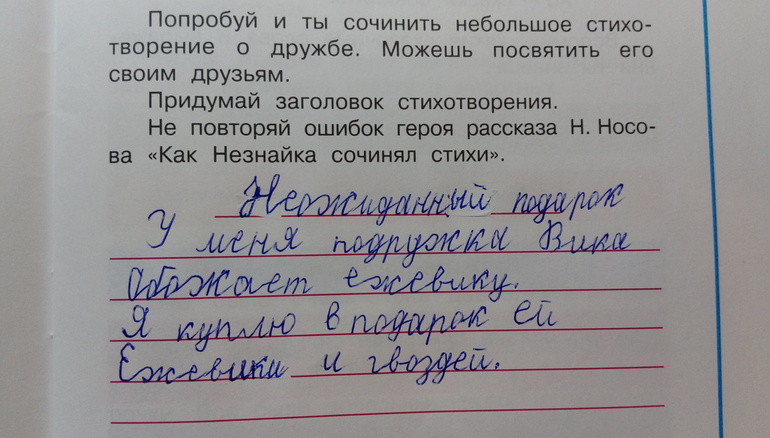 Попробуй и ты сочинить небольшое стихо-
творение о дружбе. Можешь посвятить его
своим друзьям.
Придумай заголовок стихотворения.
Не повторяй ошибок героя рассказа Н. Носо-
ва «Как Незнайка сочинял стихи».
Неожиданный подарок
У меня подружка Вика
Обожает ежевику.
Я куплю в подарок ей
Ежевики и гвоздей.